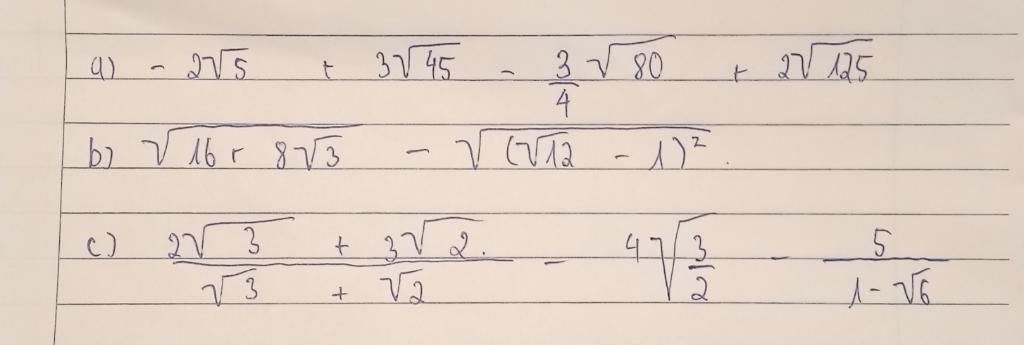 a) - 2√5 + 3√45 - 3/4 √80 + 2√125
b) √(16 + 8√3) - √((√12 - 1)²).
c) (2√3 + 3√2.)/(√3 + √2) - 4√(3/2) - 5/(1-√6)